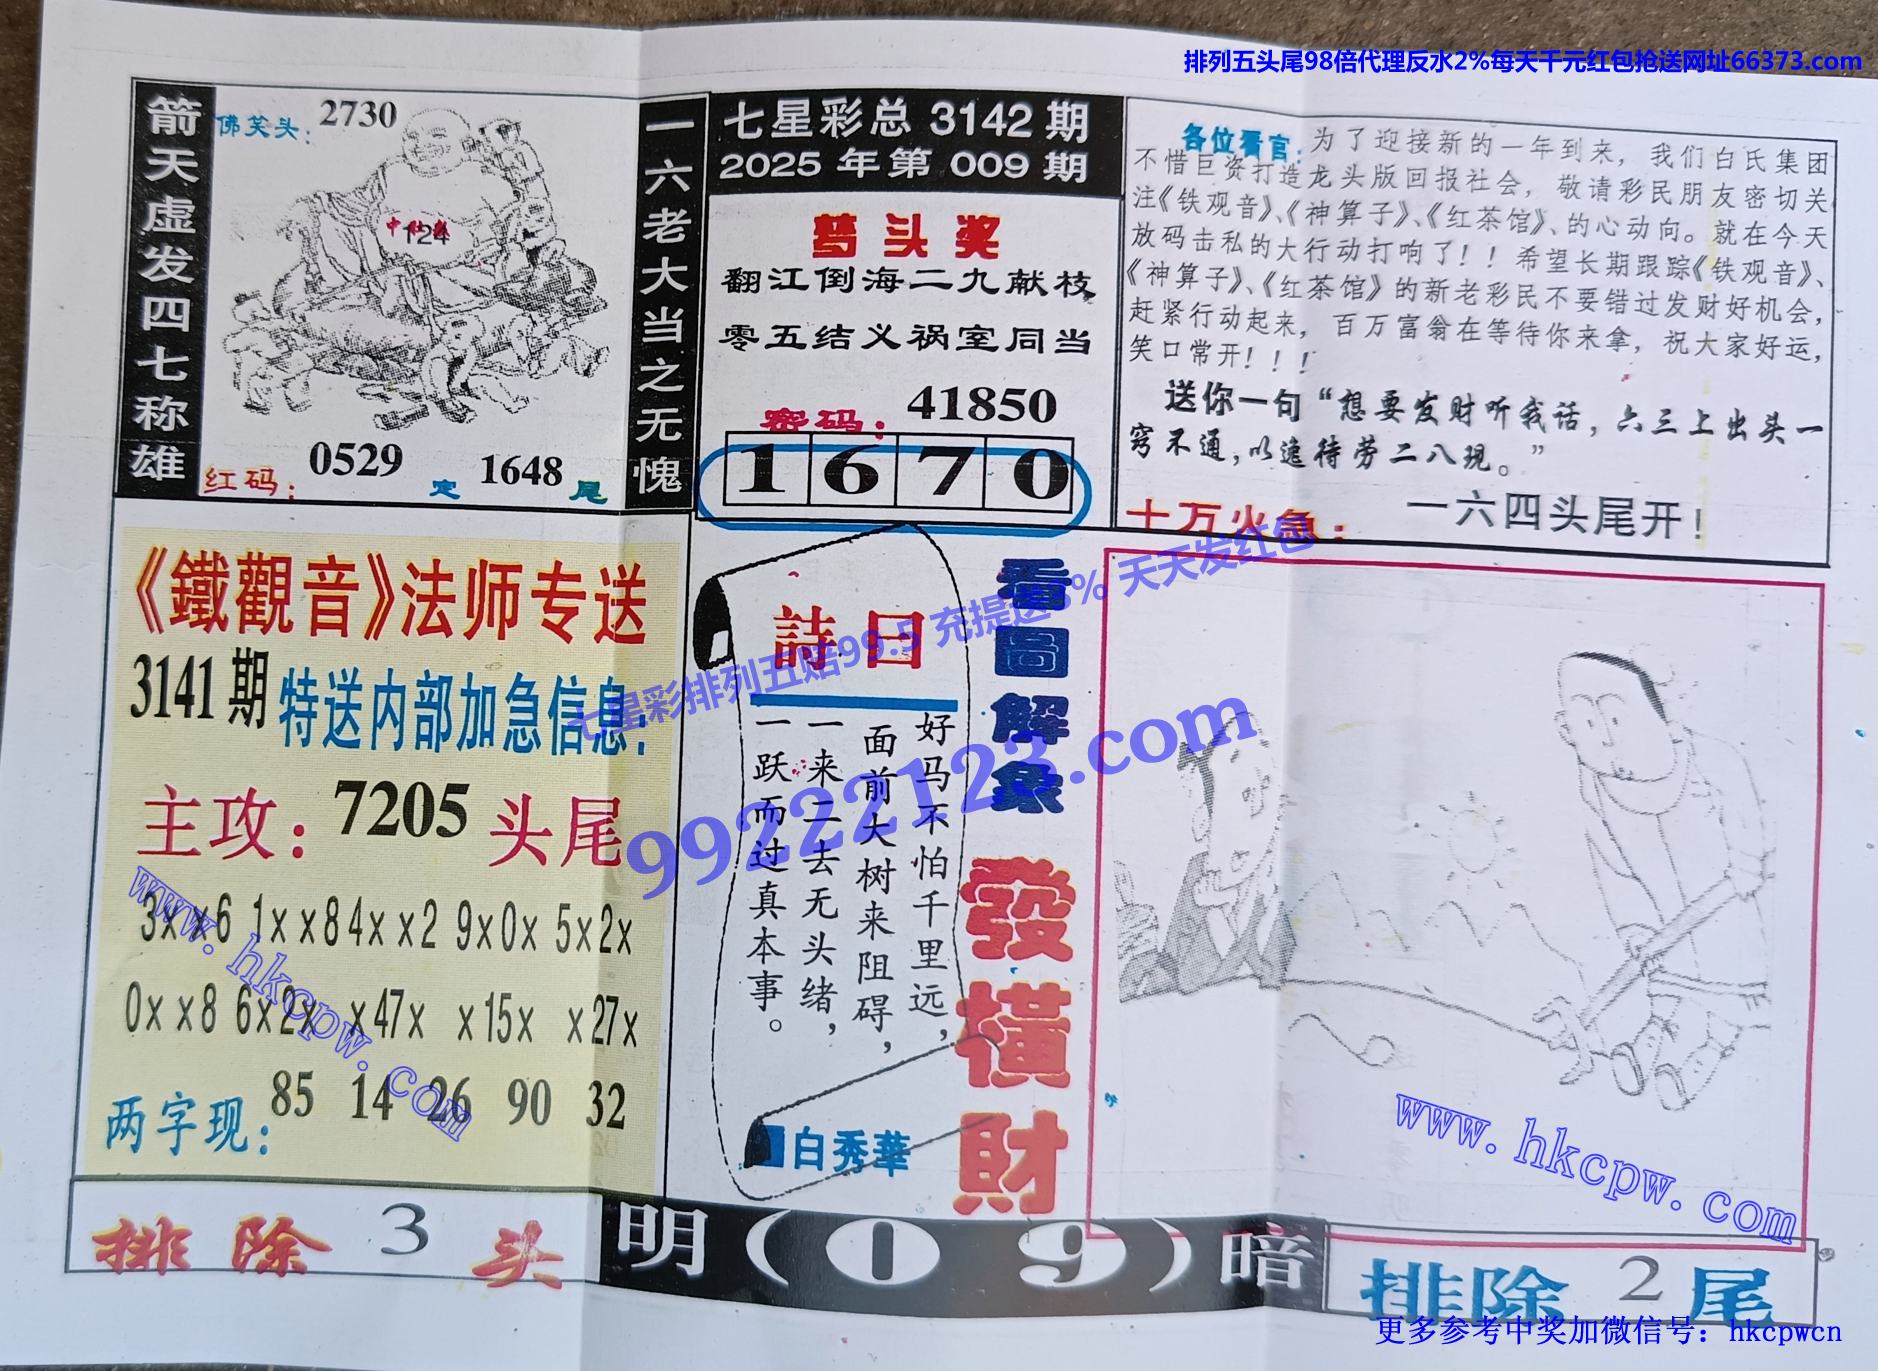 排列五头尾98倍代理反水2%每天千元红包抢送网址66373.com
箭天虚发四七称雄
佛笑头：2730
中
124
红码：0529 定 1648 尾
一六老大当之无愧
七星彩总 3142 期
2025 年第 009 期
头奖
翻江倒海二九献枝
零五结义祸室同当
密码：41850
1670
各位看官：为了迎接新的一年到来，我们白氏集团
不惜巨资打造龙头版回报社会，敬请彩民朋友密切关
注《铁观音》、《神算子》、《红茶馆》、的心动向。就在今天
放码击私的大行动打响了！！希望长期跟踪《铁观音》、
《神算子》、《红茶馆》的新老彩民不要错过发财好机会，
赶紧行动起来，百万富翁在等待你来拿，祝大家好运，
笑口常开！！！
送你一句“想要发财听我话，六三上出头一
窍不通，以逸待劳二八现。”
十万火急：一六四头尾开！
《鐵觀音》法师专送
3141期 特送内部加急信息：
主攻：7205 头尾
3××6 1××8 4××2 9×0× 5×2×
0××8 6×2× ×47× ×15× ×27×
两字现：85 14 26 90 32
詩曰
好马不怕千里远，
面前大树来阻碍，
一来二去无头绪，
一跃而过真本事。
白秀華
看圖解象
發橫財
七星彩排列五赔99.5 充提送3% 天天发红包
99222123.com
www.hkcpw.com
www.hkcpw.com
排除 3 头
明(09)暗
排除 2 尾
更多参考中奖加微信号：hkcpwcn